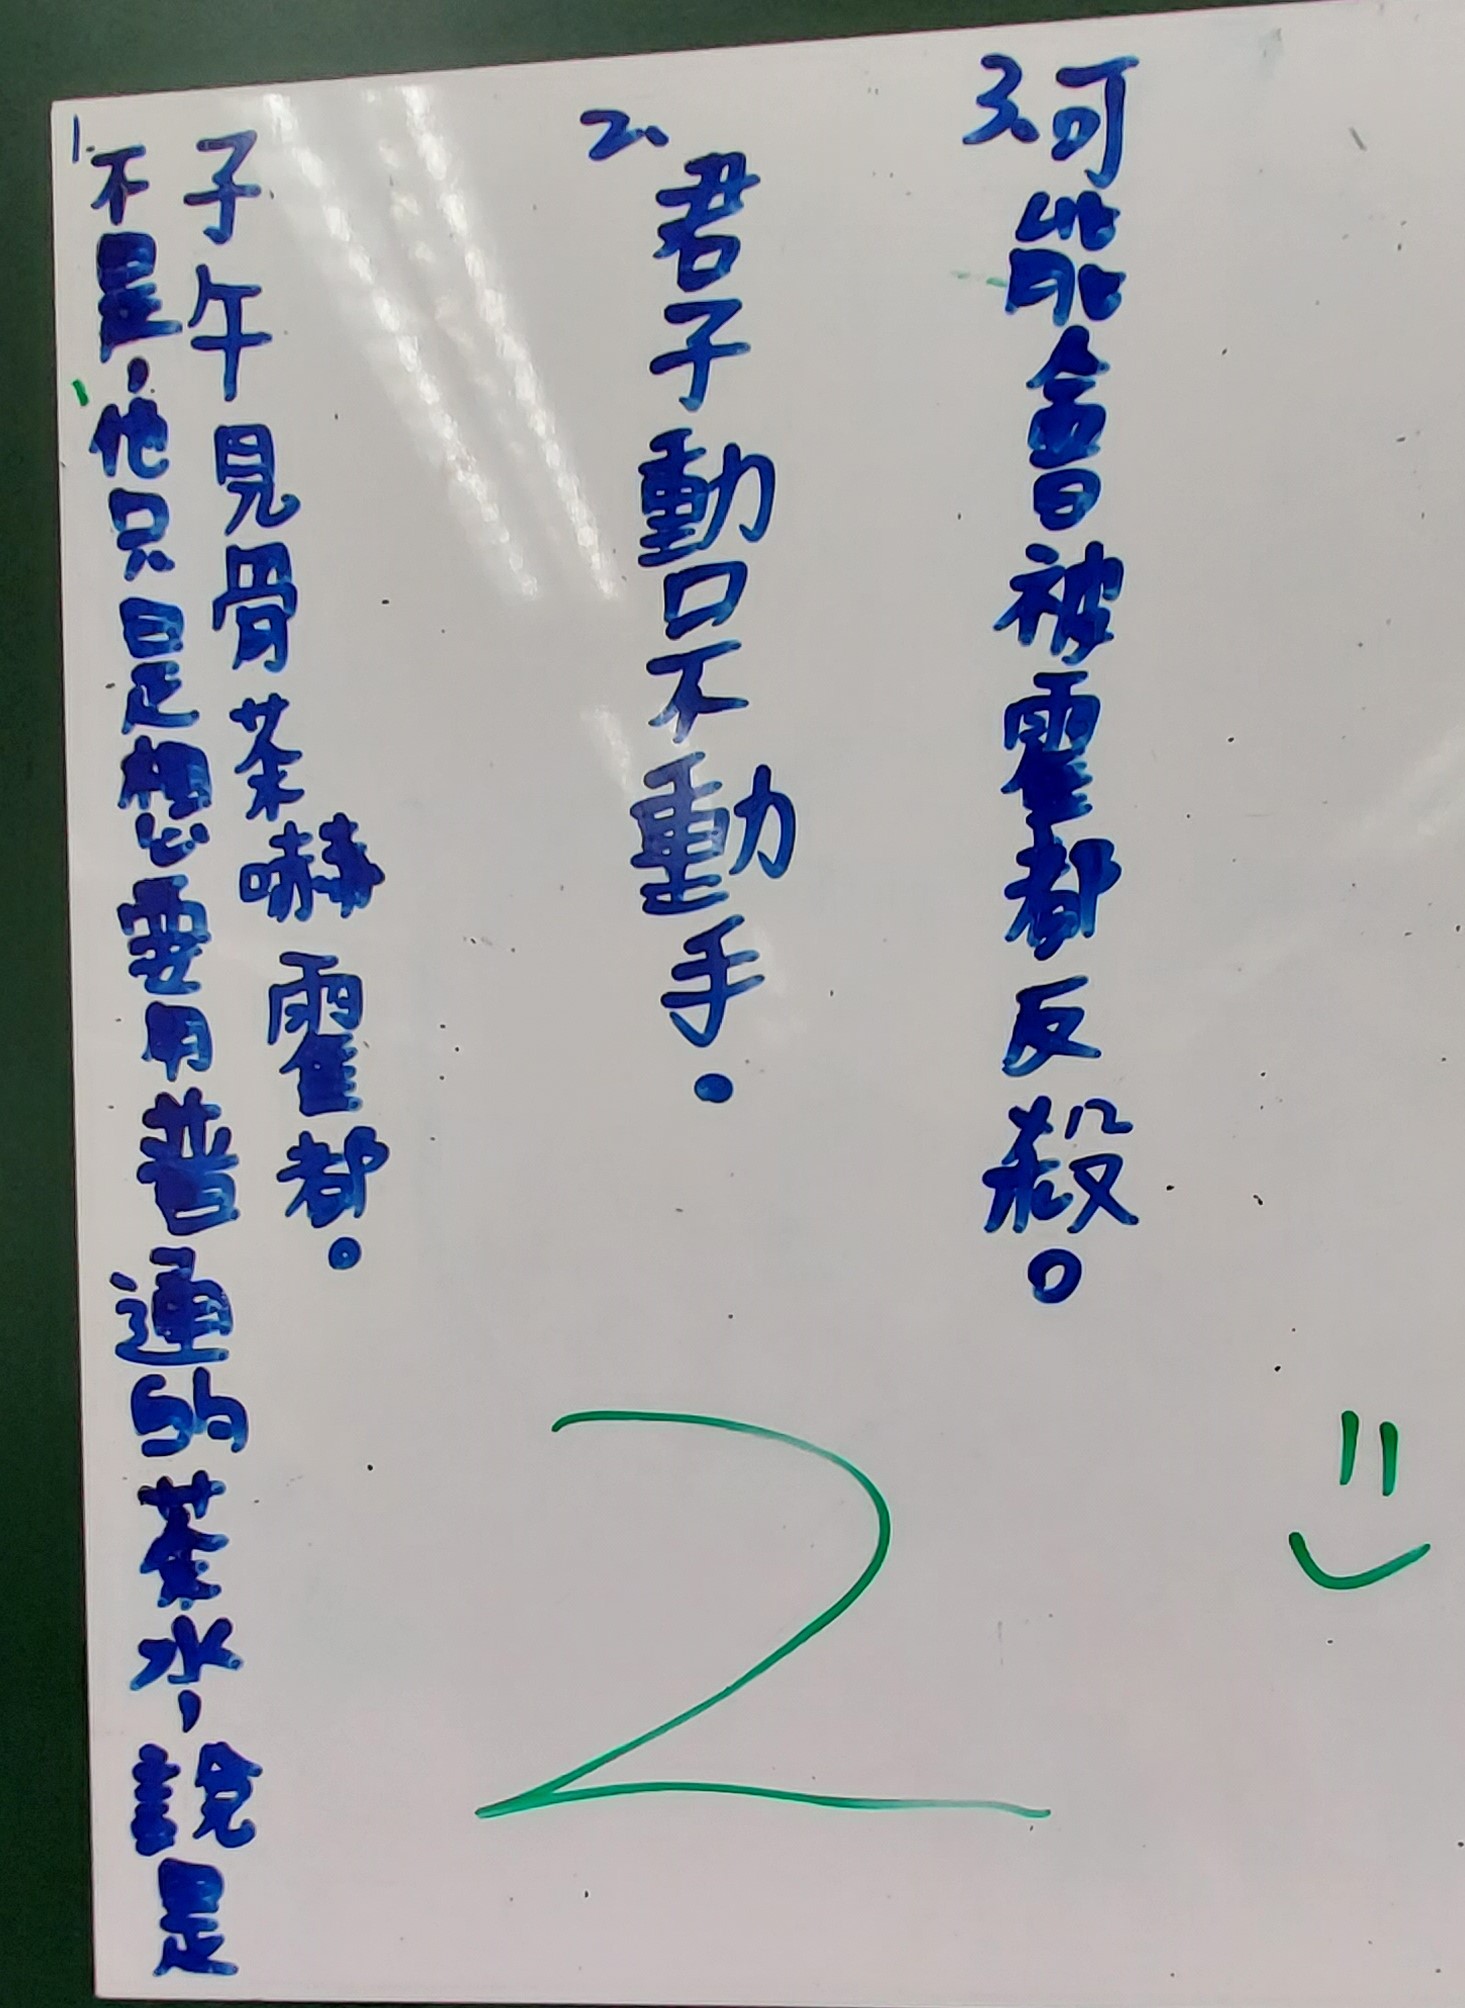 1.不是,他只是想要用普通的茶水,說是
子午見骨茶嚇霍都.
2.君子動口不動手.
3.可能會被霍都反殺。
2